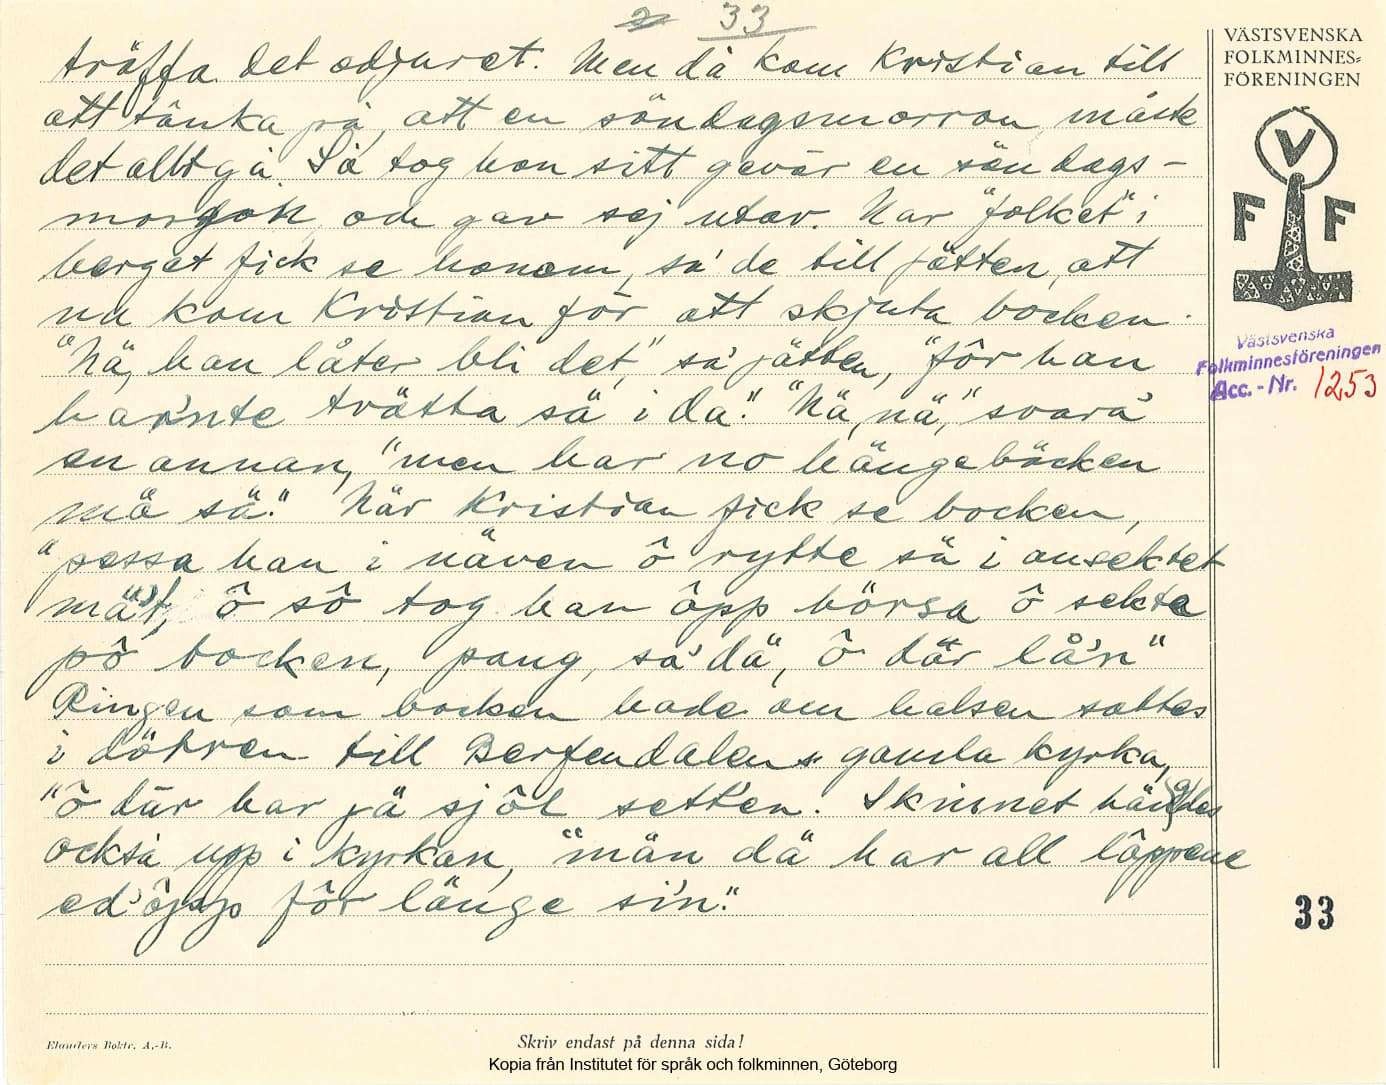 33
VÄSTSVENSKA
FOLKMINNES=
FÖRENINGEN
träffa det odjuret. Men då kom Kristian till
att tänka på, att en söndagsmorron måste
det allt gå. Så tog han sitt gevär en söndags-
morgon och gav sej utav. När "folket" i
berget fick se honom, sa' de till jätten, att
nu kom Kristian för att skjuta bocken.
"Nä, han låter bli det," sa' jätten, "för han
har'nte trätta sä i da." "Nä, nä," svara'
en annan, "men har no hängebôcken
mä sä." När Kristian fick se bocken,
"pessa han i näven ô rytte sä i ansektet
mä't, ô sô tog han ôpp börsa ô sekta
pô bocken, pang, sa' dä, ô där lå'n"
Ringen som bocken hade om halsen sattes
i dörren till Berfendalens gamla kyrka,
"ô där har jä sjôl sett'en. Skinnet hängdes
också upp i kyrkan, "män dä har all lôppene
ed'ôpp fôr länge si'n."
V
F F
Västsvenska
Folkminnesföreningen
Acc. - Nr. 1253
33
Elanders Boktr. A.-B.
Skriv endast på denna sida!
Kopia från Institutet för språk och folkminnen, Göteborg